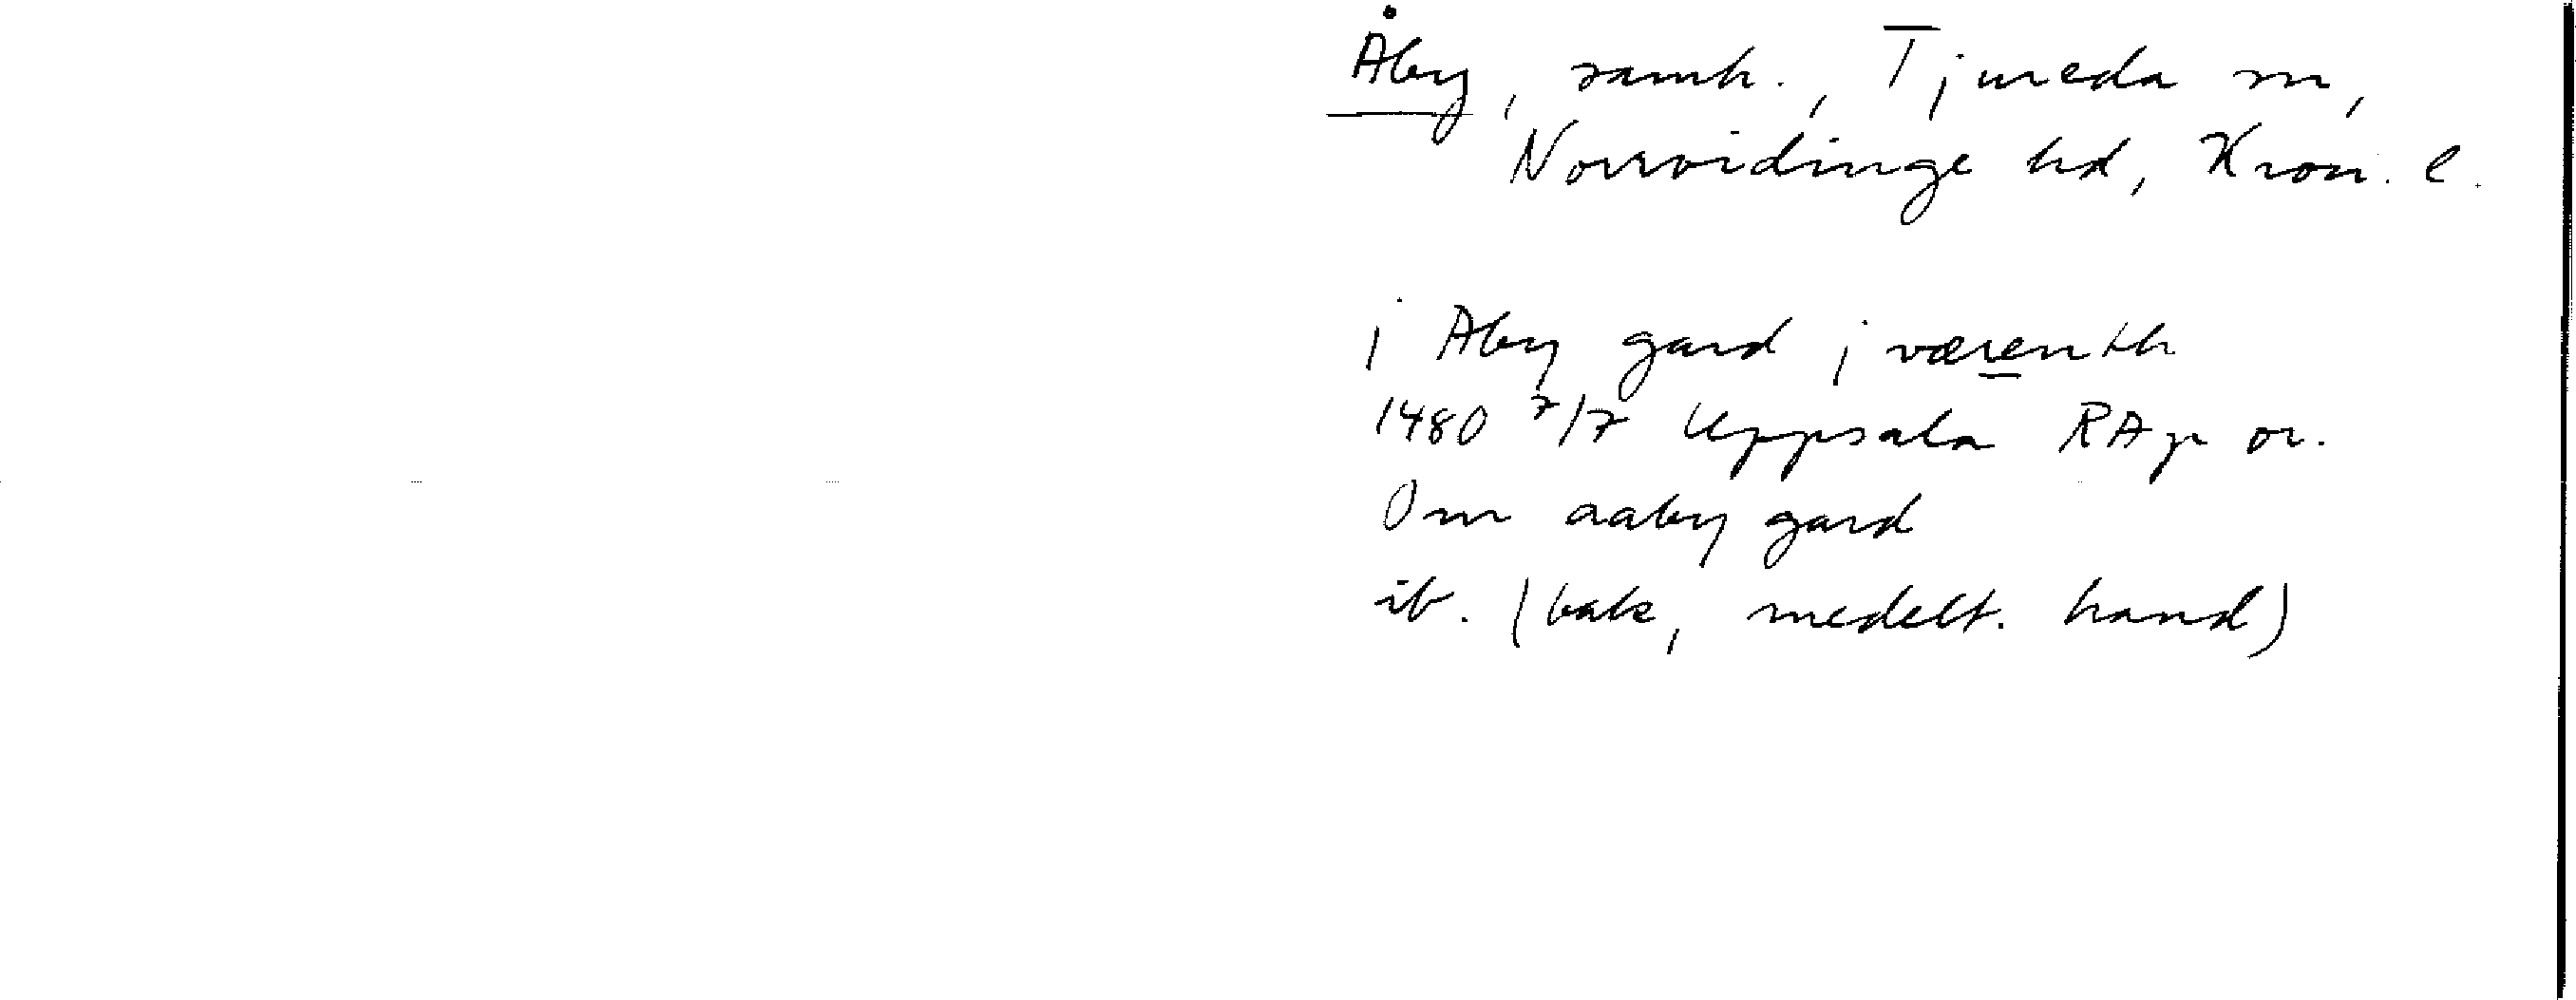 Åby, samh., Tjureda sn,
Norrvidinge hd, Kron. l.
j Aby gard j værenth
1480 7/7 Uppsala RAp or.
Om aaby gard
ib. (bak, medelt. hand)